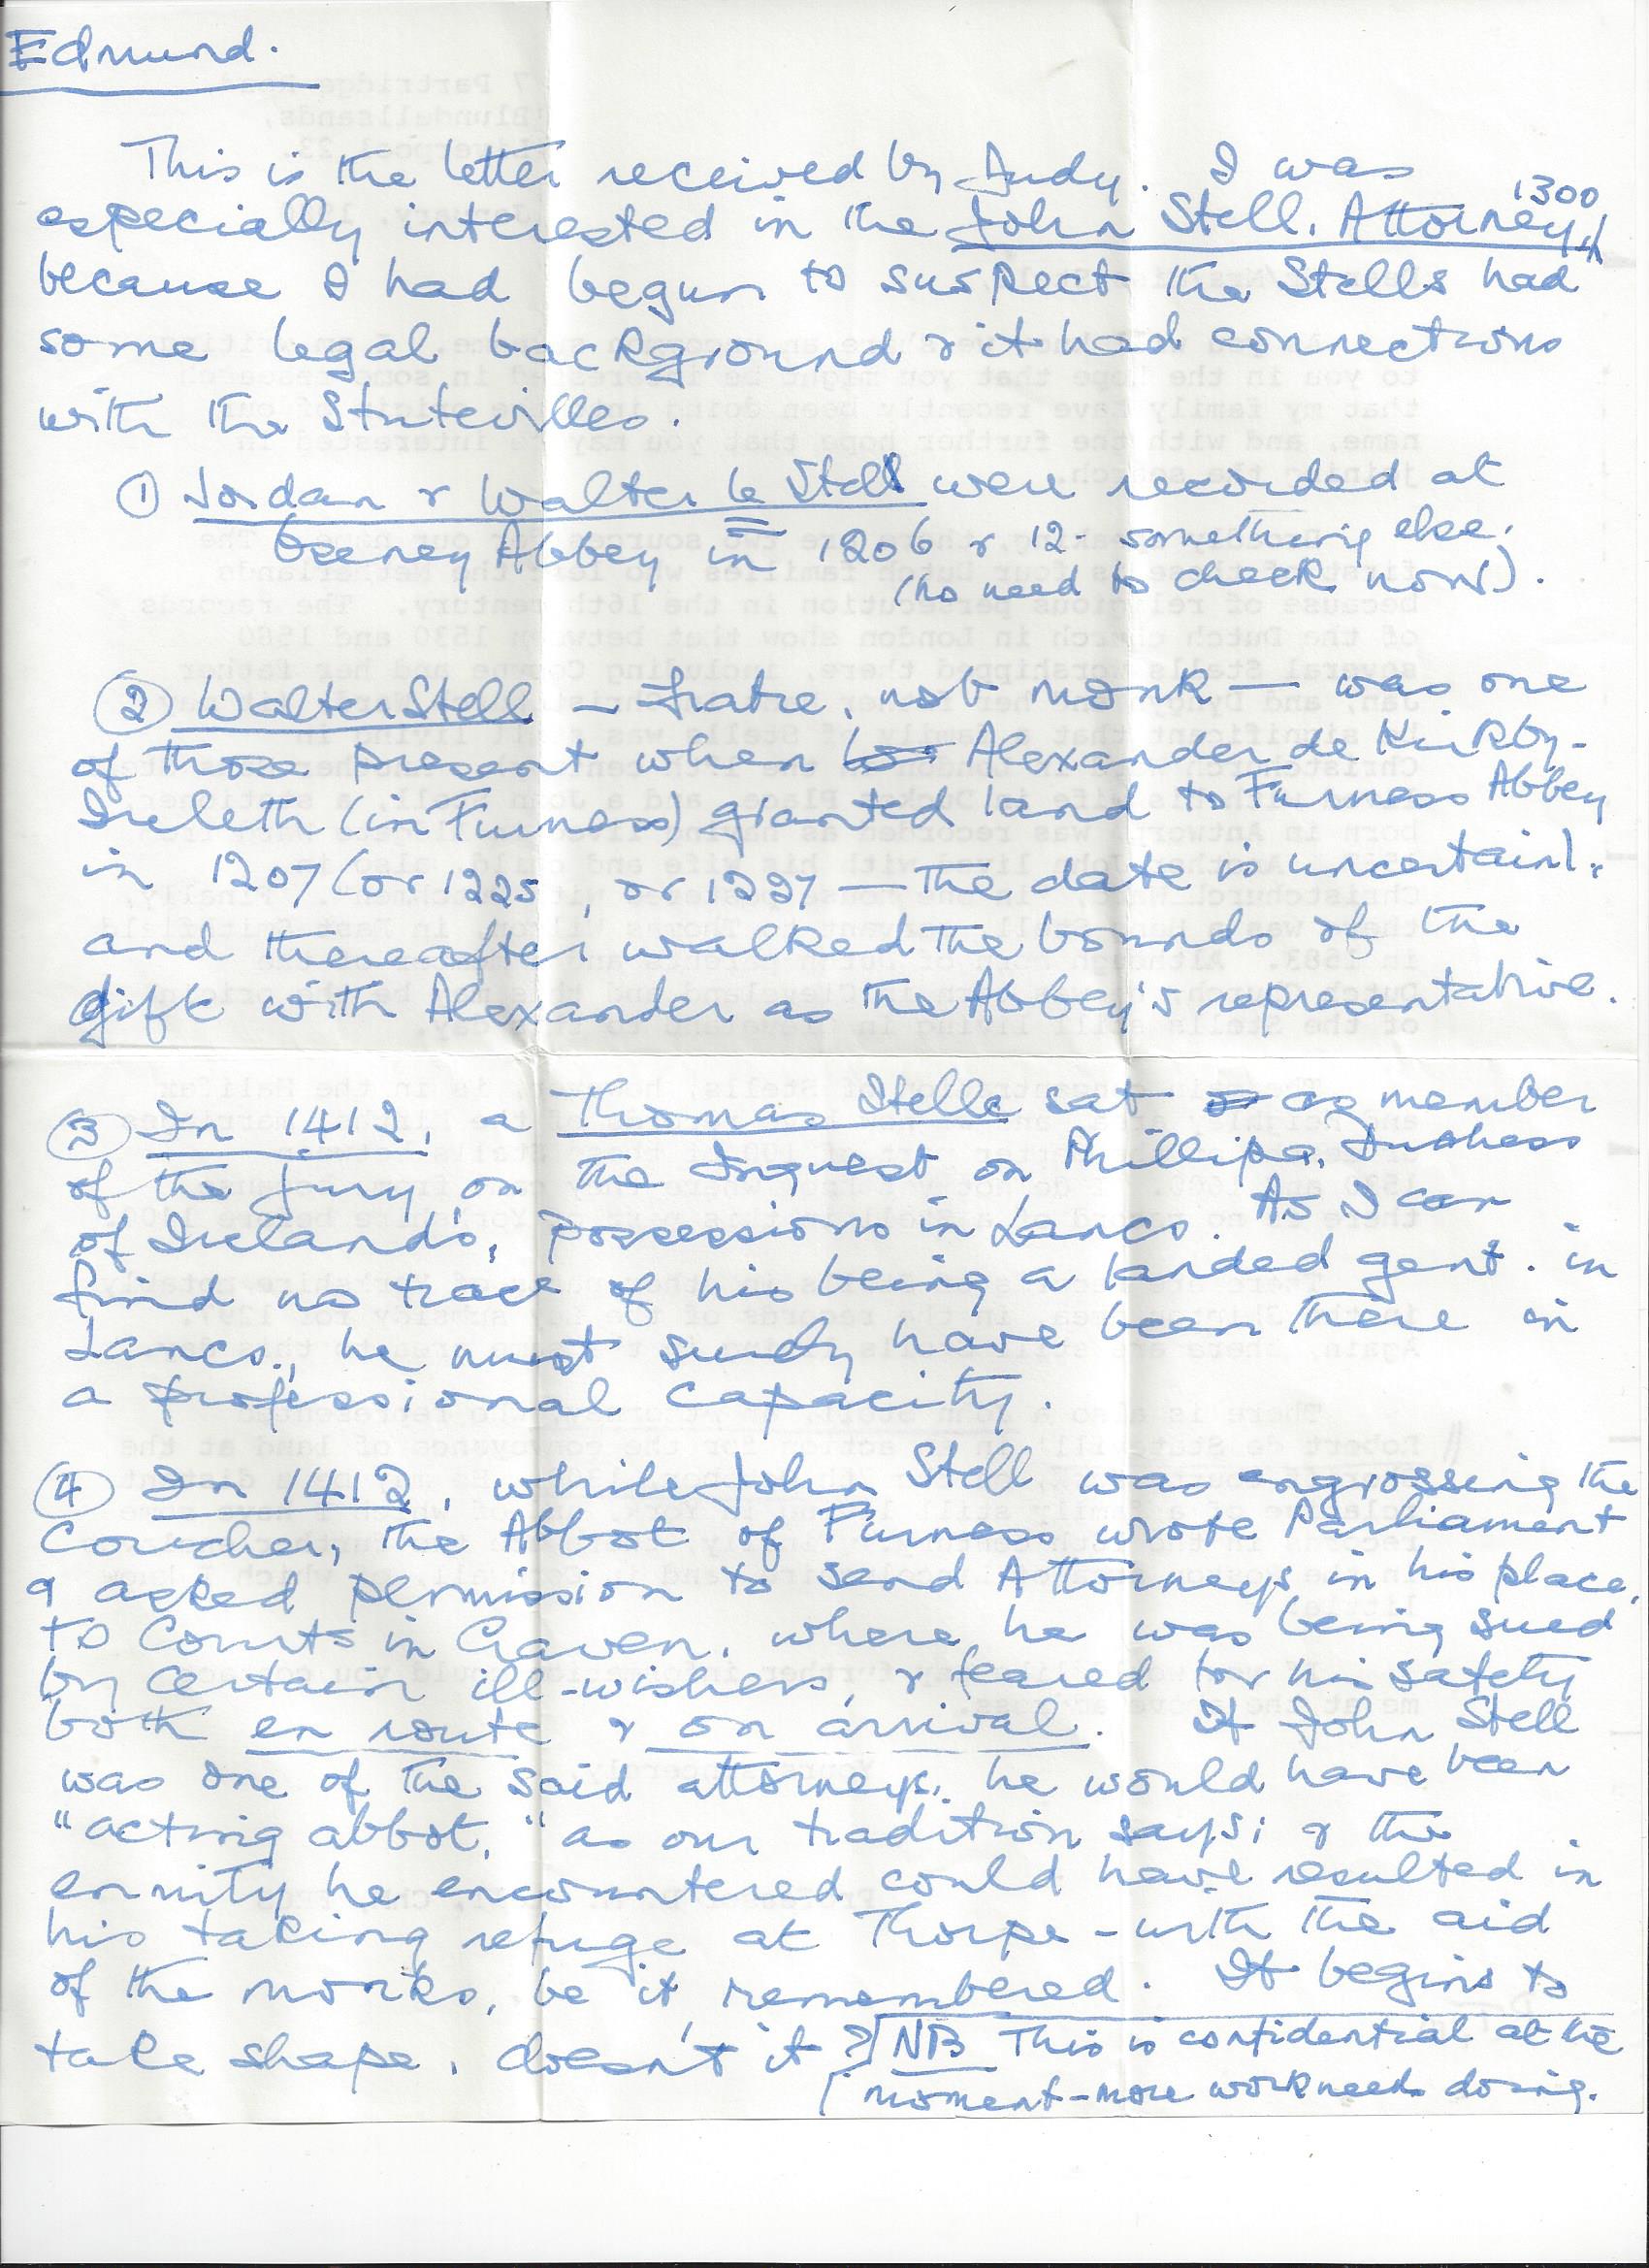 Edmund.
This is the letter received by Judy. I was
especially interested in the John Stell, Attorney, 1300
because I had begun to suspect the Stells had
some legal background & it had connections
with the Stutevilles.
① Jordan & Walter le Stell were recorded at
Oseney Abbey in 1206 & 12- something else.
(no need to check now).
② Walter Stell – fratre, not monk – was one
of those present when Alexander de Kirkby-
Ireleth (in Furness) granted land to Furness Abbey
in 1207 (or 1225, or 1227 – the date is uncertain).
and thereafter walked the bounds of the
gift with Alexander as the Abbey's representative.
③ In 1412, a Thomas Stelle sat as member
of the jury on the Inquest on Phillipa, Duchess
of Ireland's, possessions in Lancs. As I can
find no trace of his being a landed gent. in
Lancs., he must surely have been there in
a professional capacity.
④ In 1412, while John Stell was engrossing the
Coucher, the Abbot of Furness wrote Parliament
& asked permission to send Attorneys in his place,
to Courts in Craven, where he was being sued
by certain ill-wishers, & feared for his safety
both en route & on arrival. If John Stell
was one of the said attorneys, he would have been
"acting abbot," as our tradition says; & the
enmity he encountered could have resulted in
his taking refuge at Thorpe – with the aid
of the monks, be it remembered. It begins to
take shape, doesn't it?
NB This is confidential at the
moment – more work needs doing.